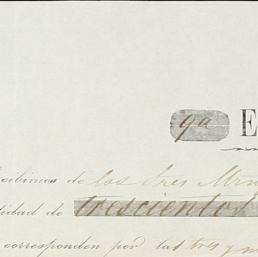 9a E
cibimos de los tres Mrn
tidad de trescientos
corresponden por las tres y m